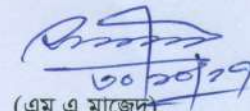 ৩০/১০/১৭
(এম এ মাজেদ)